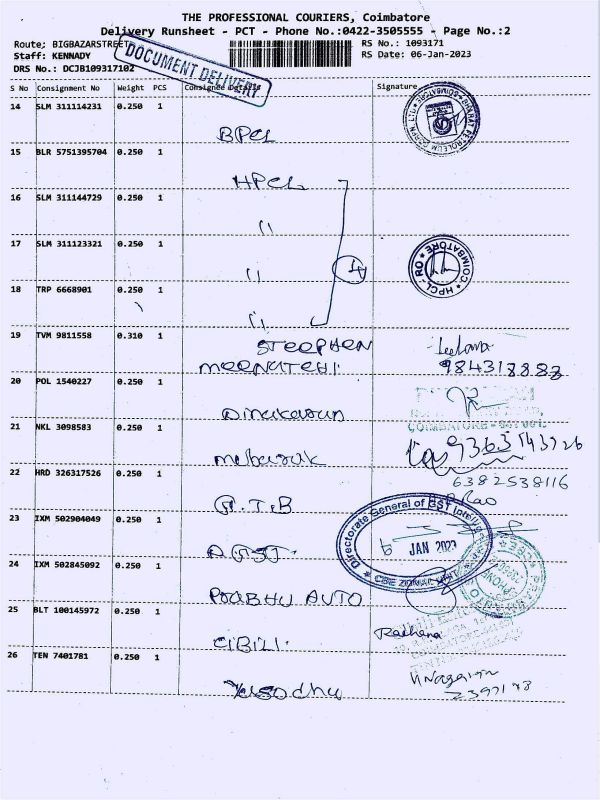 THE PROFESSIONAL COURIERS, Coimbatore
Delivery Runsheet - PCT - Phone No.:0422-3505555 - Page No.:2
Route; BIGBAZARSTREET
RS No.: 1093171
Staff: KENNADY
RS Date: 06-Jan-2023
DRS No.: DCJB109317102
DOCUMENT DELIVERY
S No Consignment No Weight PCS Consignee Details Signature
14 SLM 311114231 0.250 1
BPCL
15 BLR 5751395704 0.250 1
HPCL
16 SLM 311144729 0.250 1
"
17 SLM 311123321 0.250 1
"
HPCL - RO COIMBATORE
18 TRP 6668901 0.250 1
"
19 TVM 9811558 0.310 1
STEEPHEN
MEENATCHI
9843188.88
20 POL 1540227 0.250 1
Dinakaran
21 NKL 3098583 0.250 1
COIMBATORE
mubarak
9363143926
22 HRD 326317526 0.250 1
6382538116
G.T.B
Rao
23 IXM 502904049 0.250 1
Directorate General of GST Intelligence
6 JAN 2023
CBE ZONAL UNIT
24 IXM 502845092 0.250 1
PRABHU AUTO
25 BLT 100145972 0.250 1
CIBILI.
26 TEN 7401781 0.250 1
Yasodhu